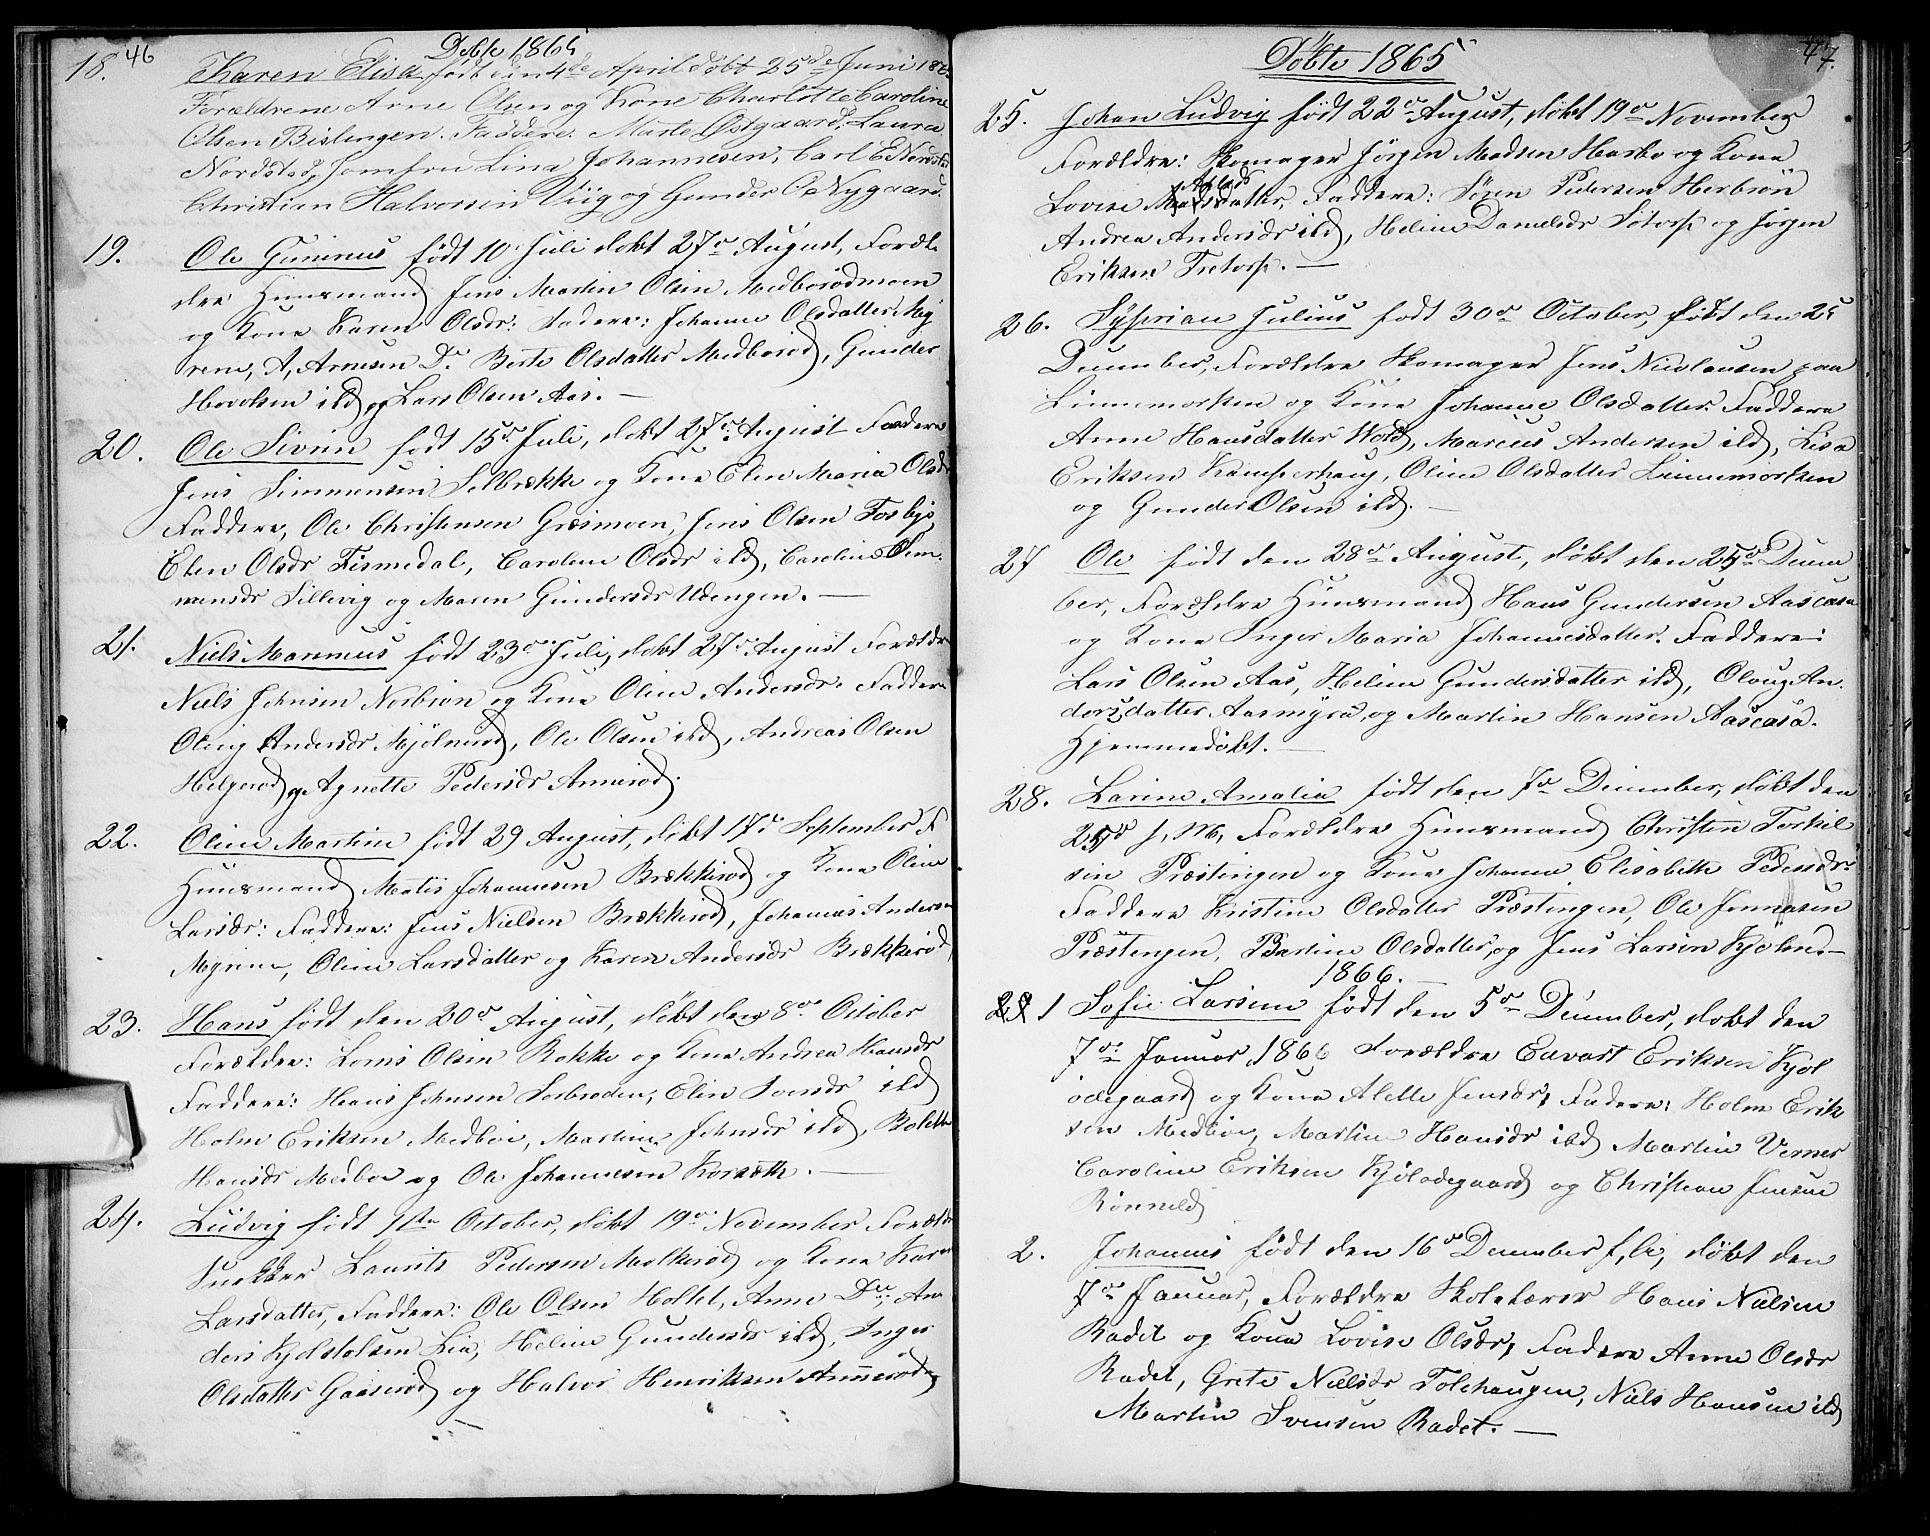 46
Døbte 1865
18. Karen Elisa født den 4de April døbt 25de Juni 186
Forældrene Arne Olsen og Kone Charlotte Caroline
Olsen Bislingen. Faddere: Marte Østgaard, Laura
Nordstad, Jomfru Lina Johannesen, Carl E Nordstad
Christian Halvorsen Viig og Gunder O. Nygaard.
19. Ole Gunerius født 10 Juli døbt 27de August, Foræl
dre Huusmand Jens Martin Olsen Medborødmoen
og Kone Karen Olsdr: Fadere: Johanne Olsdatter Myh
rene, A, Arnesen Do Berte Olsdatter Medborød, Gunder
Hovelsen ibd og Lars Olsen Aas. —
20. Ole Sivrin født 15de Juli, døbt 27de August Foreldre
Jens Simmensen Solbrække og Kone Elen Maria Olsdr
Faddere, Ole Christensen Græsmoen, Jens Olsen Fosbye
Elen Olsdr Tismedal, Caroline Olsdr ibd, Caroline Sim
mensdr Sillivig og Maren Gundersdr Udengen. —
21. Niels Marinius født 23de Juli, døbt 27de August Forældre
Niels Johnsen Nerbion og Kone Oline Andersdr. Faddere
Oleug Andersdr Mjølnerød, Ole Olsen ibd, Andreas Olsen
Helgerød og Agnette Pedersdr Annerød.
22. Oline Martine født 29 August, døbt 17de September F
Huusmand Mathis Johannesen Brækkerød og Kone Oline
Larsdr: Faddere: Jens Nielsen Brækkerød, Johannes Andersen
Myrene, Oline Larsdatter og Karen Andersdr Brækkerød
23. Hans født den 20de August, døbt den 8de October
Forældre: Lornts Olsen Rokke og Kone Andrea Hansdr
Faddere: Hans Johnsen Sorbroden, Elen Svensdr ibd
Holm Eriksen Medboe, Martine Johnsdr ibd, Bolette
Hansdr Medboe og Ole Johannesen Korsæth. —
24. Ludvig født 1ste October, døbt 19de November Foræld
Snekker Laurits Pedersen Molkerød og Kone Karen
Larsdatter, Faddere: Ole Olsen Holtet, Anne Do, An
ders Kjolstolsen Lia, Heline Gundersdr ibd, Inger
Olsdatter Gaaserød og Halvor Henriksen Annerød
47.
Døbte 1865
25. Johan Ludvig født 22de August, døbt 19de November
Forældre: Skomager Jørgen Madsen Harbo og Kone
Lovise datter, Faddere: Søren Pedersen Herbrön
Andrea Andersdr ibd, Heline Danielsdr Sotorp og Jørgen
Eriksen Tretorp. —
26. Syprian Julius født 30de October, født den 25
December, Forældre Skomager Jens Nicolausen paa
Linnemorken og Kone Johanne Olsdatter Faddere
Anne Hansdatter Wold, Marius Andersen ibd, Lisa
Eriksen Kamperhaug, Oline Olsdatter Linnemorken
og Gunder Olsen ibd. —
27 Ole født den 28de August, døbt den 25de Decem
ber, Forældre Huusmand Hans Gundersen Aascasa
og Kone Inger Maria Johannesdatter. Faddere:
Lars Olsen Aas, Heline Gundersdatter ibd, Oloug An
dersdatter Aasmyra, og Martin Hansen Aascasa.
Hjemmedøbt. —
28. Larine Amalie født den 7de December, døbt den
25de s. M, Forældre Huusmand Christen Torkil
sen Præstingen og Kone Johanne Elisabeth Pedersdr
Faddere Kristine Olsdatter Præstingen, Ole Jonnasen
Præstengen, Bertine Olsdatter, og Jens Larsen Kjølen. —
1866.
29 1 Sofie Larsine født den 5de December, døbt den
7de Januar 1866 Forældre Edvart Eriksen Kjøl
ødegaard og Kone Alette Jensdr, Fadere: Holm Erik
sen Medboe, Martin Hansdr ibd Martin Verner
Caroline Eriksen Kjølødegaard og Christian Jensen
Rønneld
2. Johannes født den 16de December f. A, døbt den
7de Januar, Forældre Skolelærer Hans Nielsen
Radet og Kone Lovise Olsdr, Fadere Anne Olsdr
Radet, Grete Nielsdr Tolehaugen, Niels Hansen ibd
Martin Svensen Radet. —